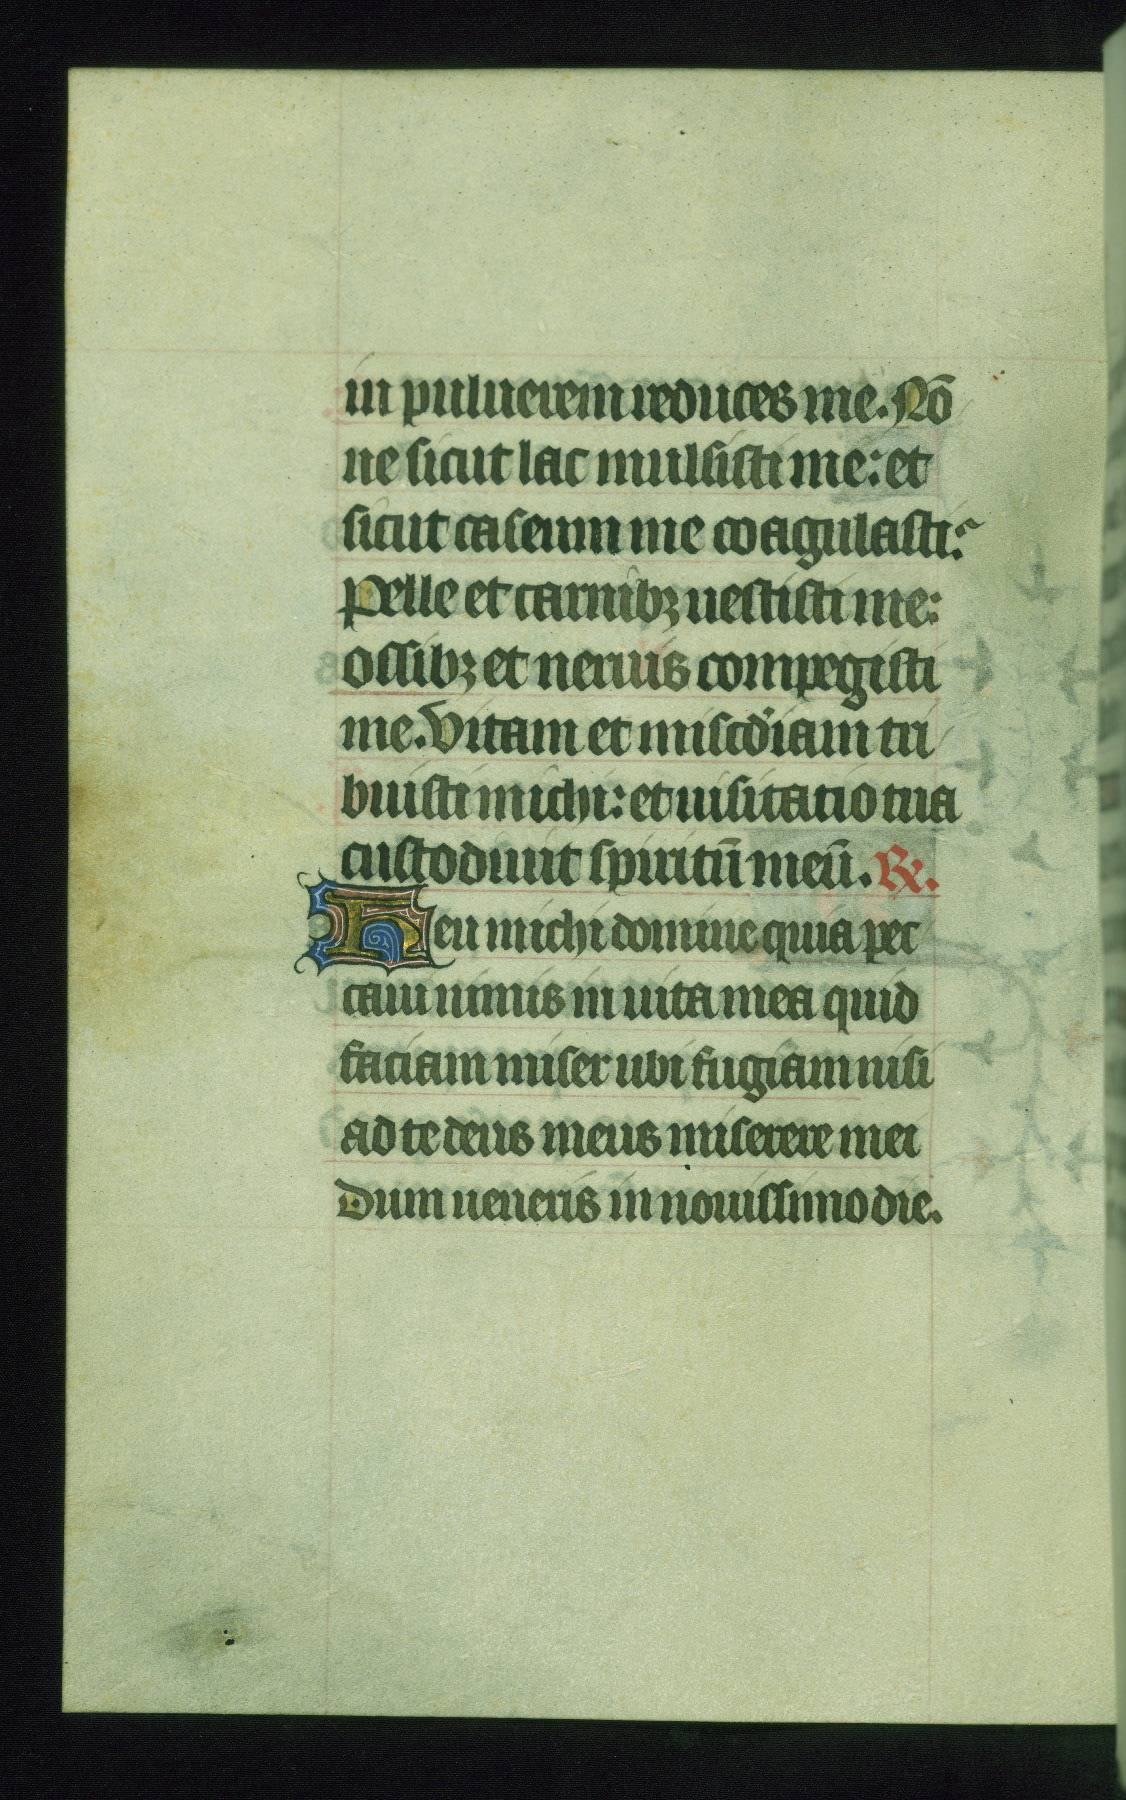 in puluerem reduces me. Nō
ne sicut lac mulsisti me: et
sicut caseum me coagulasti:
Pelle et carnibꝫ uestisti me:
ossibꝫ et neruis compegisti
me. Vitam et misc̄diam tri
buisti michi: et uisitatio tua
custodiuit spiritū meū. ℟.
Heu michi domine quia pec
caui nimis in uita mea quid
faciam miser ubi fugiam nisi
ad te deus meus miserere mei
dum ueneris in nouissimo die.